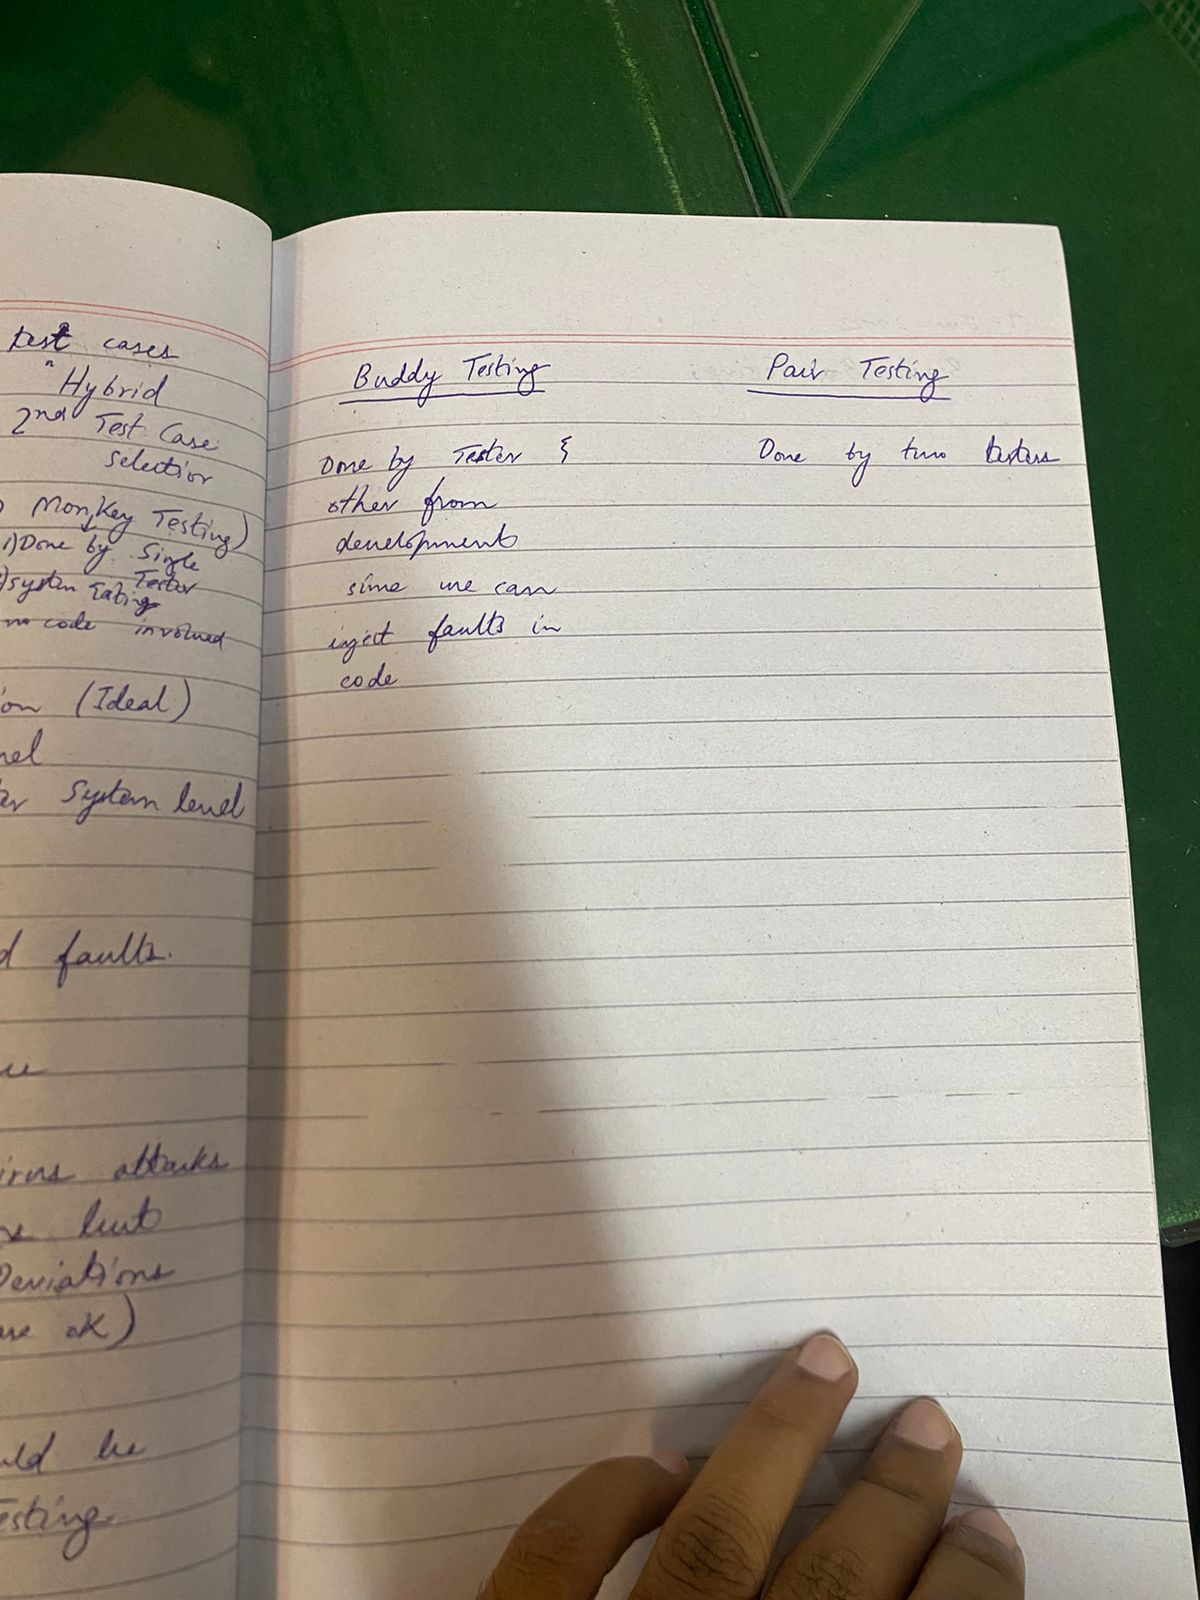 test cases
" Hybrid
2nd Test Case
selection
Monkey Testing)
1) Done by Single
Tester
system Testing
no code involved
on (Ideal)
nel
System level
faults.
irus attacks
but
Deviations
are OK)
uld be
esting.
Buddy Testing
Done by Tester &
other from
development
sime we can
inject faults in
code
Pair Testing
Done by two testers